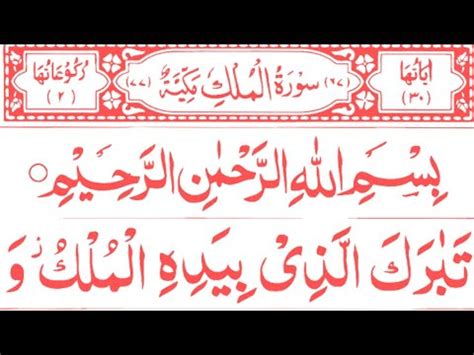 اٰيَاتُهَا (٣٠) (٦٧) سُوْرَةُ الْمُلْكِ مَكِّيَّةٌ (٧٧) رُكُوْعَاتُهَا (٢)
بِسْمِ اللّٰهِ الرَّحْمٰنِ الرَّحِيْمِ
تَبٰرَكَ الَّذِىْ بِيَدِهِ الْمُلْكُ ز وَ